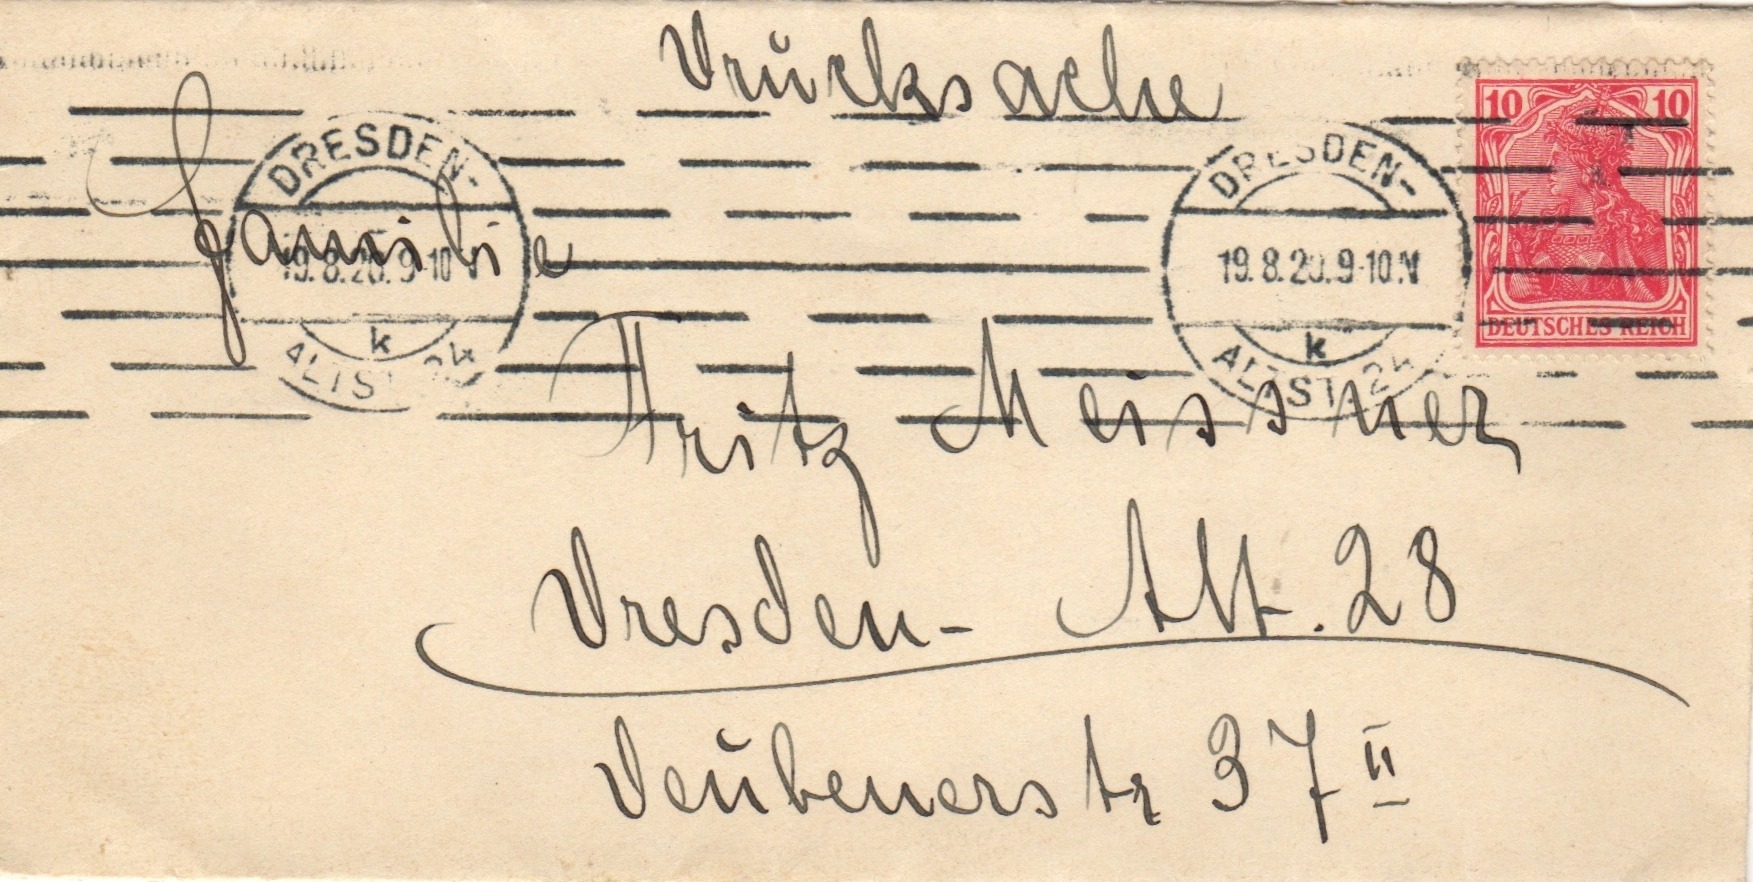 Drucksache
10 10
DEUTSCHES REICH
DRESDEN-
19.8.20.9-10 N
k
ALTST. 24
DRESDEN-
19.8.20.9-10.N
k
ALTST. 24
Familie
Fritz Meissner
Dresden- Alt. 28
Deubenerstr 37 II